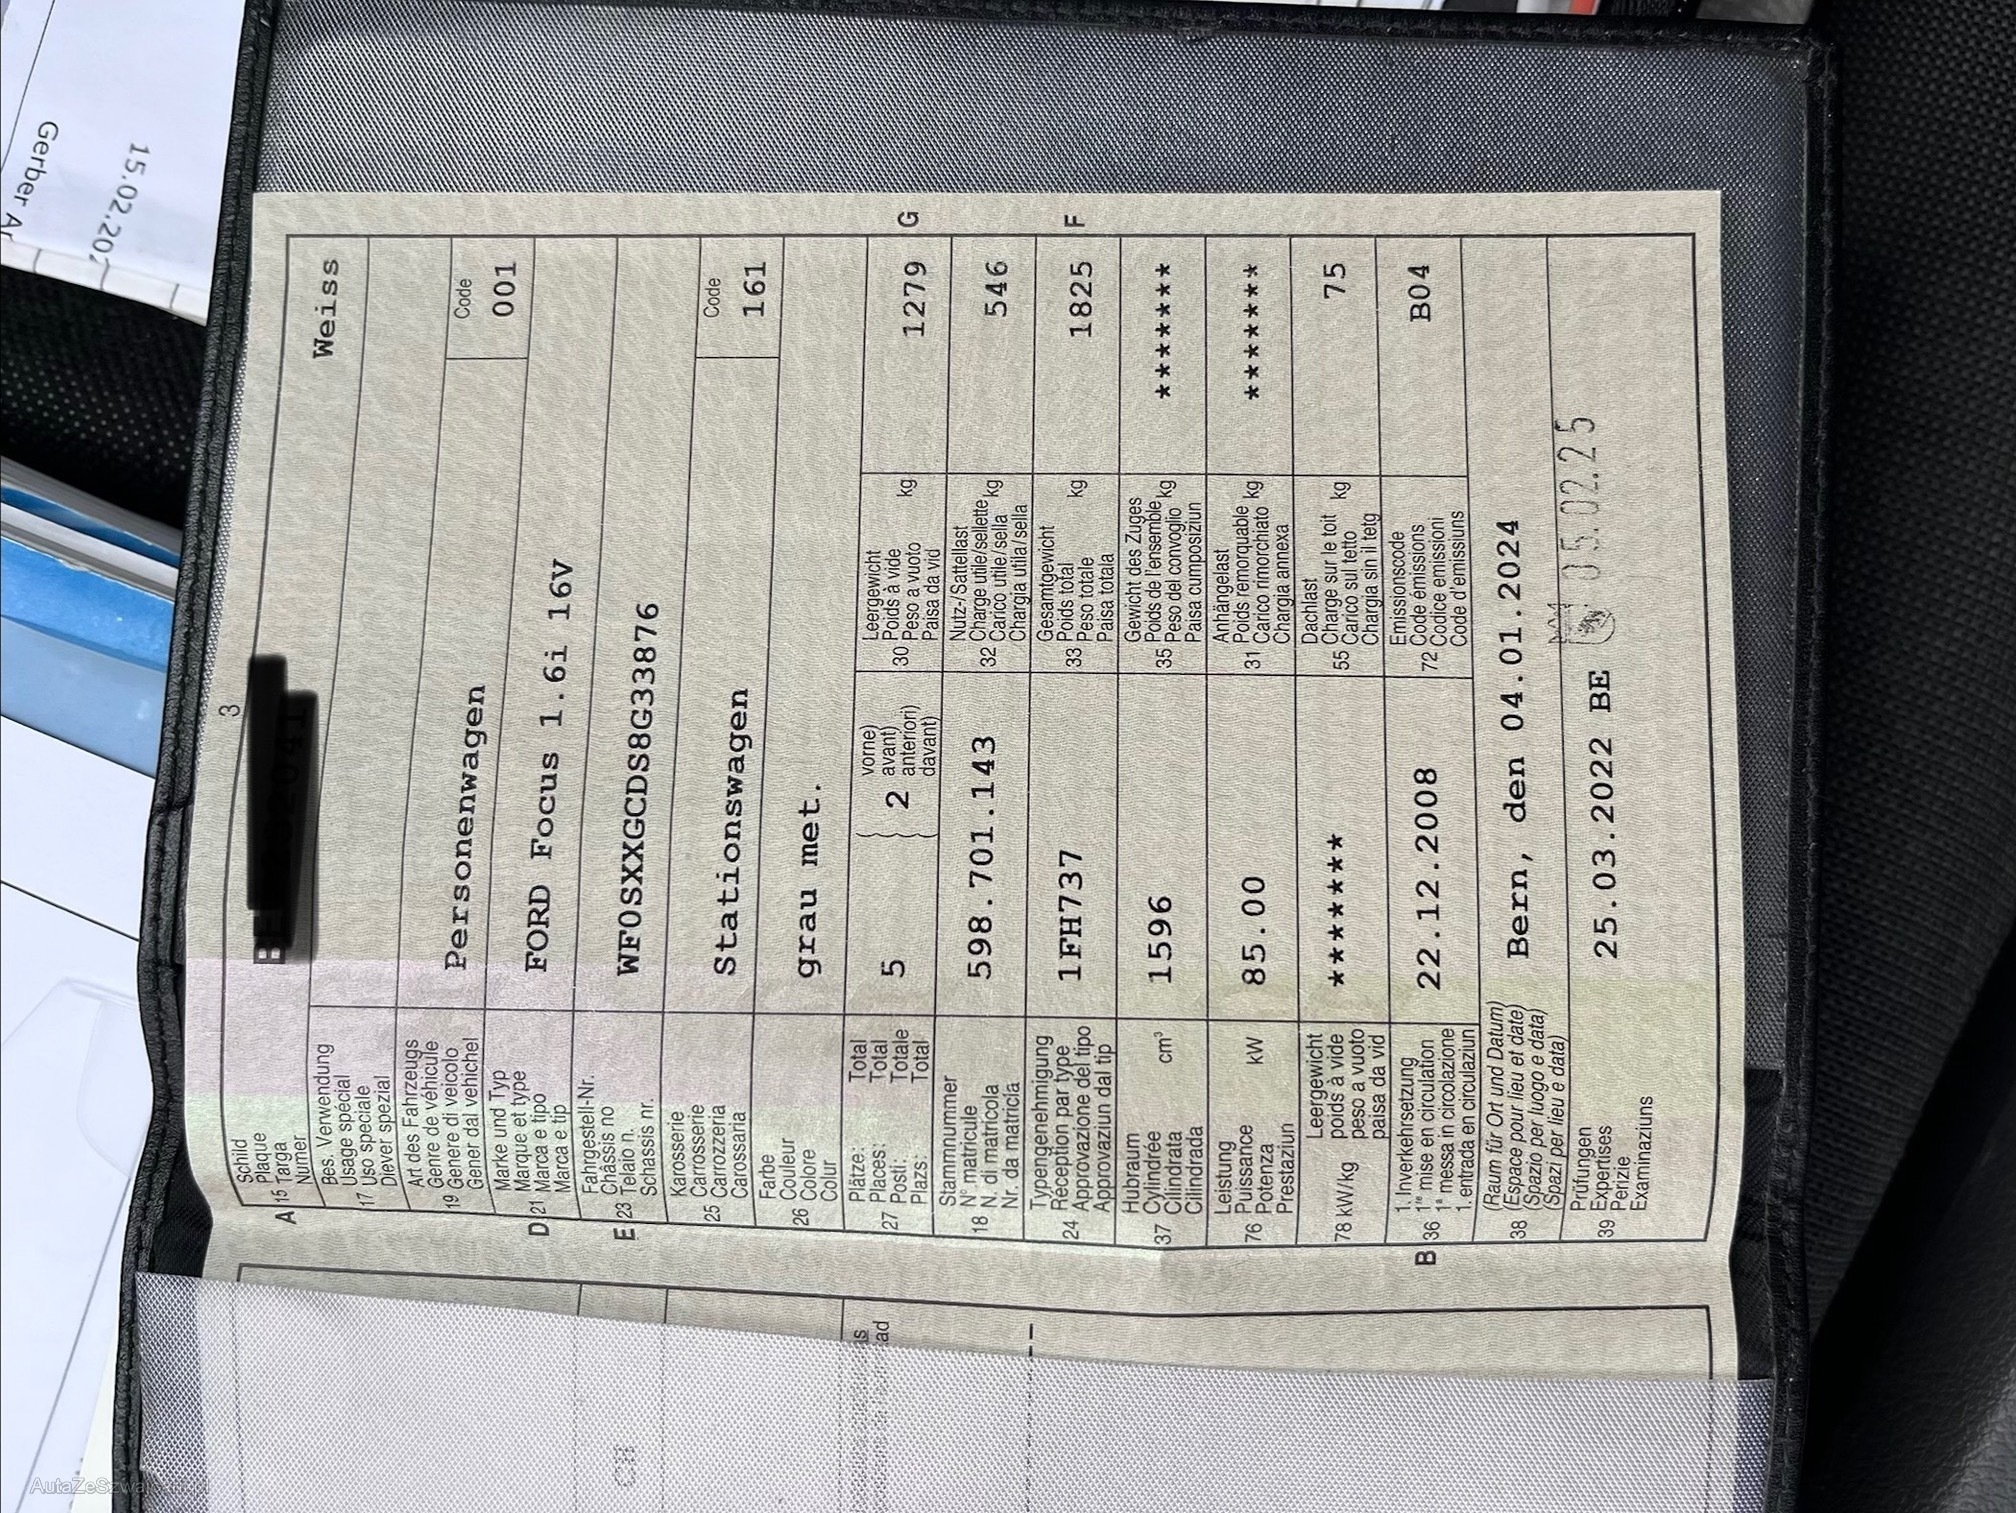 3
A 15 Schild
Plaque
Targa
Numer
Weiss
17 Bes. Verwendung
Usage spécial
Uso speciale
Diever spezial
19 Art des Fahrzeugs
Genre de véhicule
Genere di veicolo
Gener dal vehichel
Personenwagen
Code
001
D 21 Marke und Typ
Marque et type
Marca e tipo
Marca e tip
FORD Focus 1.6i 16V
E 23 Fahrgestell-Nr.
Châssis no
Telaio n.
Schassis nr.
WF0SXXGCDS8G33876
25 Karosserie
Carrosserie
Carrozzeria
Carossaria
Stationswagen
Code
161
26 Farbe
Couleur
Colore
Colur
grau met.
27 Plätze: Total
Places: Total
Posti: Totale
Plazs: Total
5
2
vorne)
avant)
anteriori)
davant)
30 Leergewicht
Poids à vide
Peso a vuoto
Paisa da vid
kg
1279
G
18 Stammnummer
N° matricule
N. di matricola
Nr. da matricla
598.701.143
32 Nutz-/Sattellast
Charge utile/sellette
Carico utile/sella
Chargia utila/sella
kg
546
24 Typengenehmigung
Réception par type
Approvazione del tipo
Approvaziun dal tip
1FH737
33 Gesamtgewicht
Poids total
Peso totale
Paisa totala
kg
1825
F
37 Hubraum
Cylindrée
Cilindrata
Cilindrada
cm³
1596
35 Gewicht des Zuges
Poids de l'ensemble
Peso del convoglio
Paisa cumposiziun
kg
*******
76 Leistung
Puissance
Potenza
Prestaziun
kW
85.00
31 Anhängelast
Poids remorquable
Carico rimorchiato
Chargia annexa
kg
*******
78 kW/kg
Leergewicht
poids à vide
peso a vuoto
paisa da vid
*******
55 Dachlast
Charge sur le toit
Carico su tetto
Chargia sin il tetg
kg
75
B 36 1. Inverkehrsetzung
1re mise en circulation
1a messa in circolazione
1. entrada en circulaziun
22.12.2008
72 Emissionscode
Code émissions
Codice emissioni
Code d'emissiuns
B04
38 (Raum für Ort und Datum)
(Espace pour lieu et date)
(Spazio per luogo e data)
(Spazi per lieu e data)
Bern, den 04.01.2024
39 Prüfungen
Expertises
Perizie
Examinaziuns
25.03.2022 BE
05.02.25
Gerber
CH